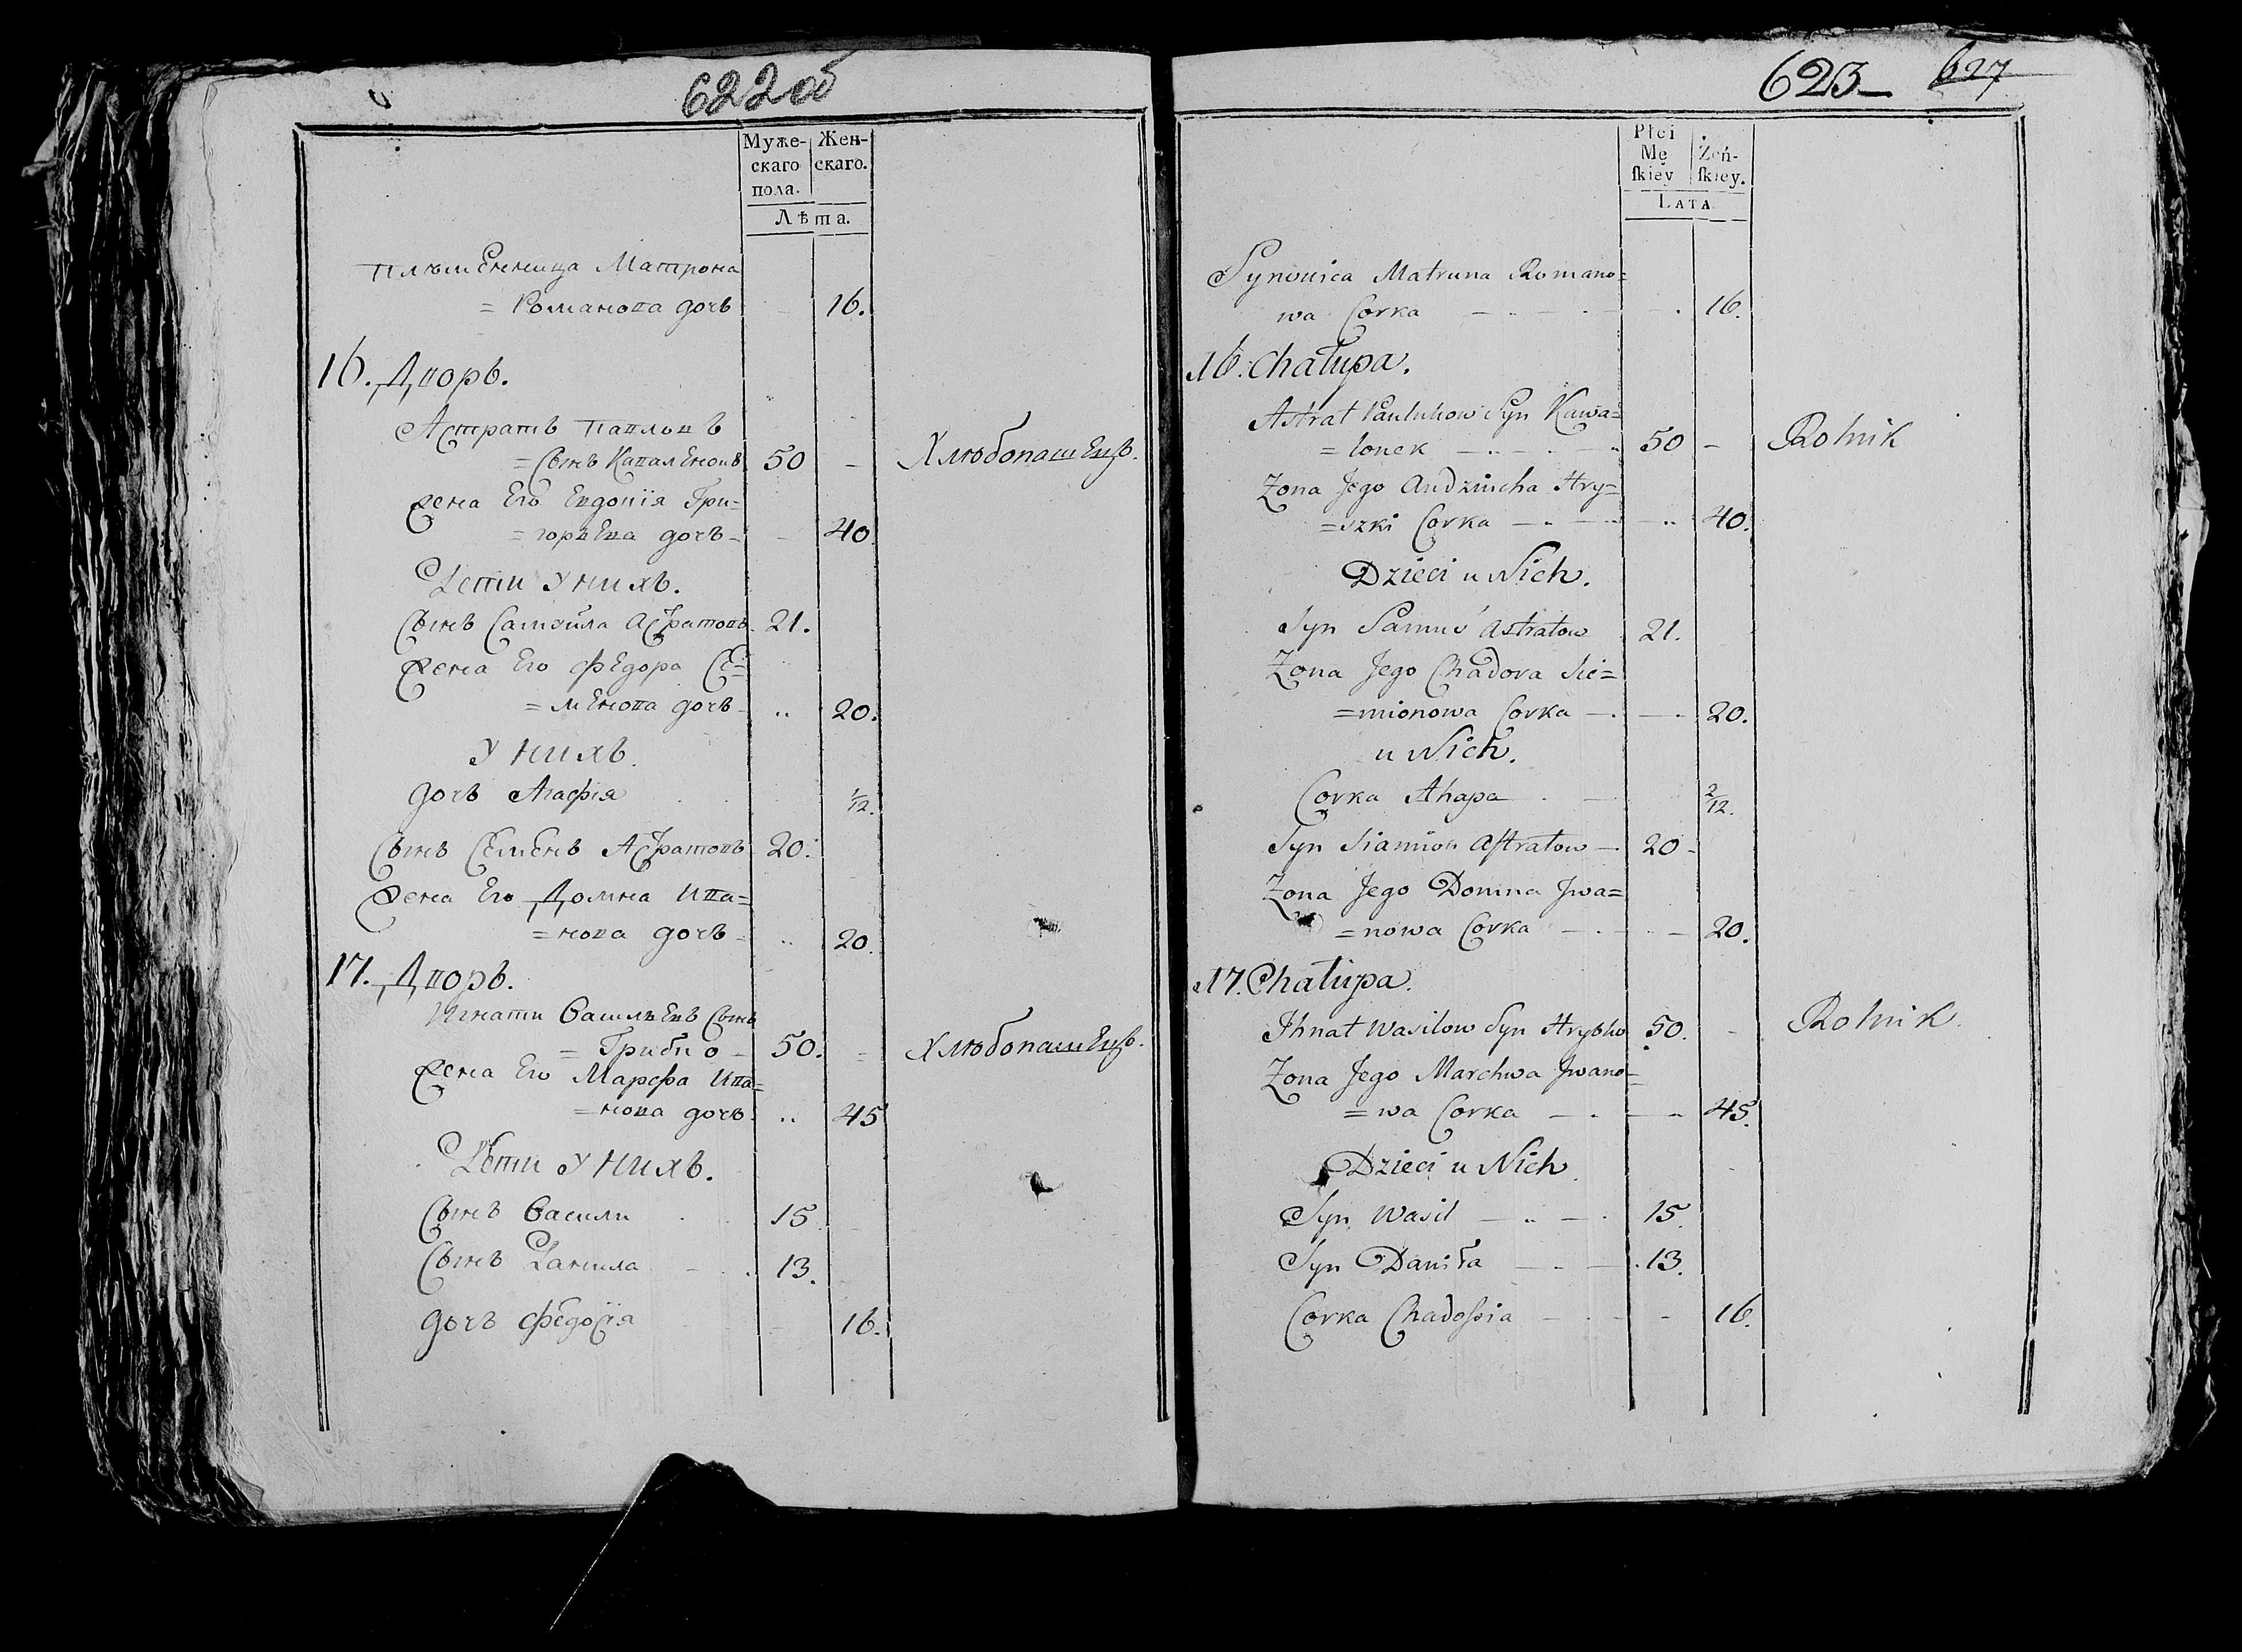 622 об
Муже-
скаго
пола.
Жен-
скаго.
Лѣта.
Племенница Матрона
= Романова дочь 16.
16. Дворъ.
Астратъ Павловъ
= Сынъ Каваленокъ 50 - Хлюбопашецъ.
Жена Его Евдокія Гри=
= горьева дочь - 40.
Дети у нихъ.
Сынъ Самойла Астратовъ 21.
Жена Его Федора Се=
= менова дочь - 20.
у нихъ.
дочь Агафія 1/12.
Сынъ Семенъ Астратовъ 20.
Жена Его Домна Ива=
= нова дочь - 20.
17. Дворъ.
Игнати Васильевъ Сынъ
= Грибко - 50. - Хлюбопашецъ.
Жена Его Марфа Ива=
= нова дочь. 45
Дѣти у нихъ.
Сынъ Васили 15.
Сынъ Данила 13.
дочь Федосія 16.
623 627
Płci
Mę
ſkiey
Żeń-
ſkiey.
LATA
Synowica Matruna Romano=
wa Corka 16.
16. Chałupa.
Astrat Paulukow Syn Kawa=
= lonek 50 - Rolnik
Zona Jego Audziucha Hry=
= szki Corka 40.
Dzieci u Nich.
Syn Samuś Astratow 21.
Zona Jego Chadora Sie=
= mionowa Corka 20.
u Nich.
Corka Ahapa 2/12.
Syn Siamion Aſtratow 20 -
Zona Jego Domna Jwa=
= nowa Corka 20.
17. Chałupa.
Jhnat Wasilow Syn Hrybko 50. - Rolnik.
Zona Jego Marchwa Jwano=
= wa Corka 45.
Dzieci u Nich.
Syn Wasil 15.
Syn Daniła 13.
Corka Chadoſsia 16.